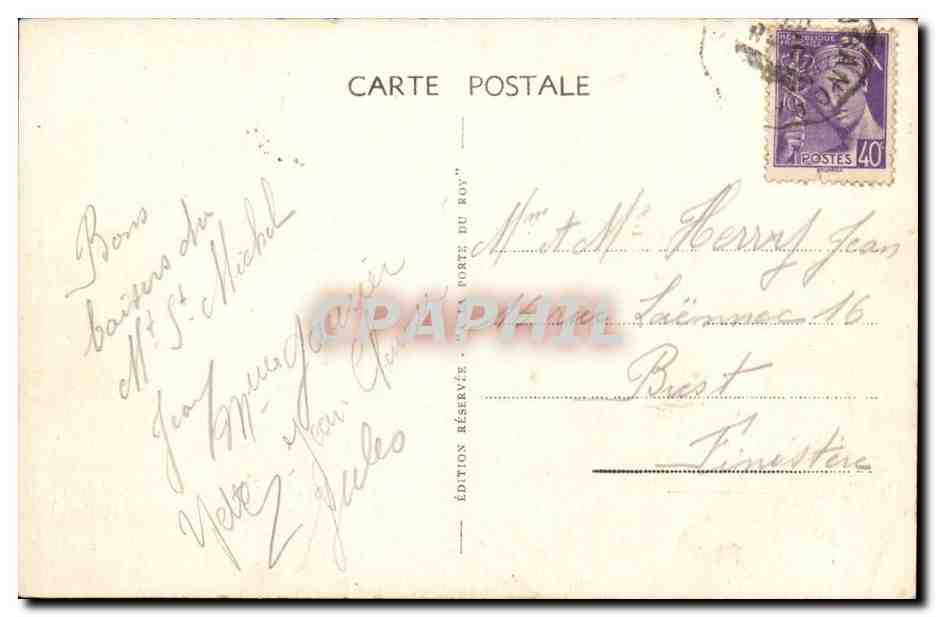 CARTE POSTALE
RÉPUBLIQUE
FRANÇAISE
POSTES 40c
Bons
baisers du
Mt St. Michel
Jean
Mme Janvier
Yette
Jean-
Jules
ÉDITION RÉSERVÉE - "A LA PORTE DU ROY"
CPAPHIL
Mme et Mr Herry Jean
16 rue Laënnec 16
Brest
Finistère